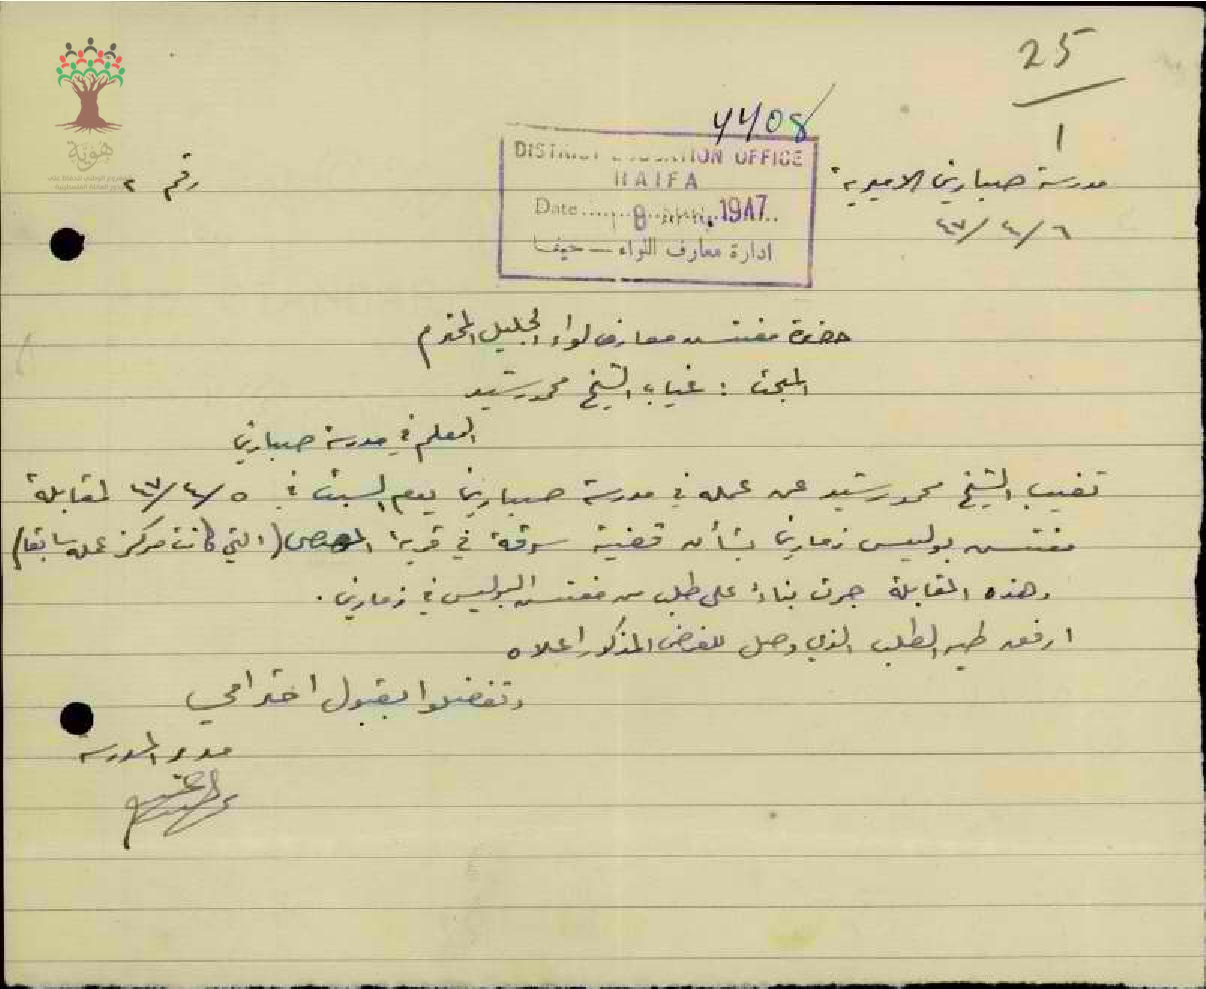 25
1
4408
DISTRICT EDUCATION OFFICE
HAIFA
Date ...... 8 APR. 1947
ادارة معارف اللواء — حيفا
هوية
مدرسة صبارين الاميرية
رقم ٢
٦/٤/٤٧
حضرة مفتش معارف لواء الجليل المحترم
المبحث : غياب الشيخ محمد رشيد
المعلم في مدرسة صبارين
تغيب الشيخ محمد رشيد عن عمله في مدرسة صبارين يوم السبت في ٥/٤/٤٧ لمقابلة
مفتش بوليس زمارين بشأن قضية سرقة في قرية (التي كانت مركز عمله سابقا)
وهذه المقابلة جرت بناء على طلب من مفتش البوليس في زمارين .
ارفع طيه الطلب الذي وصل للغرض المذكور اعلاه
وتفضلوا بقبول احترامي
مدير المدرسة